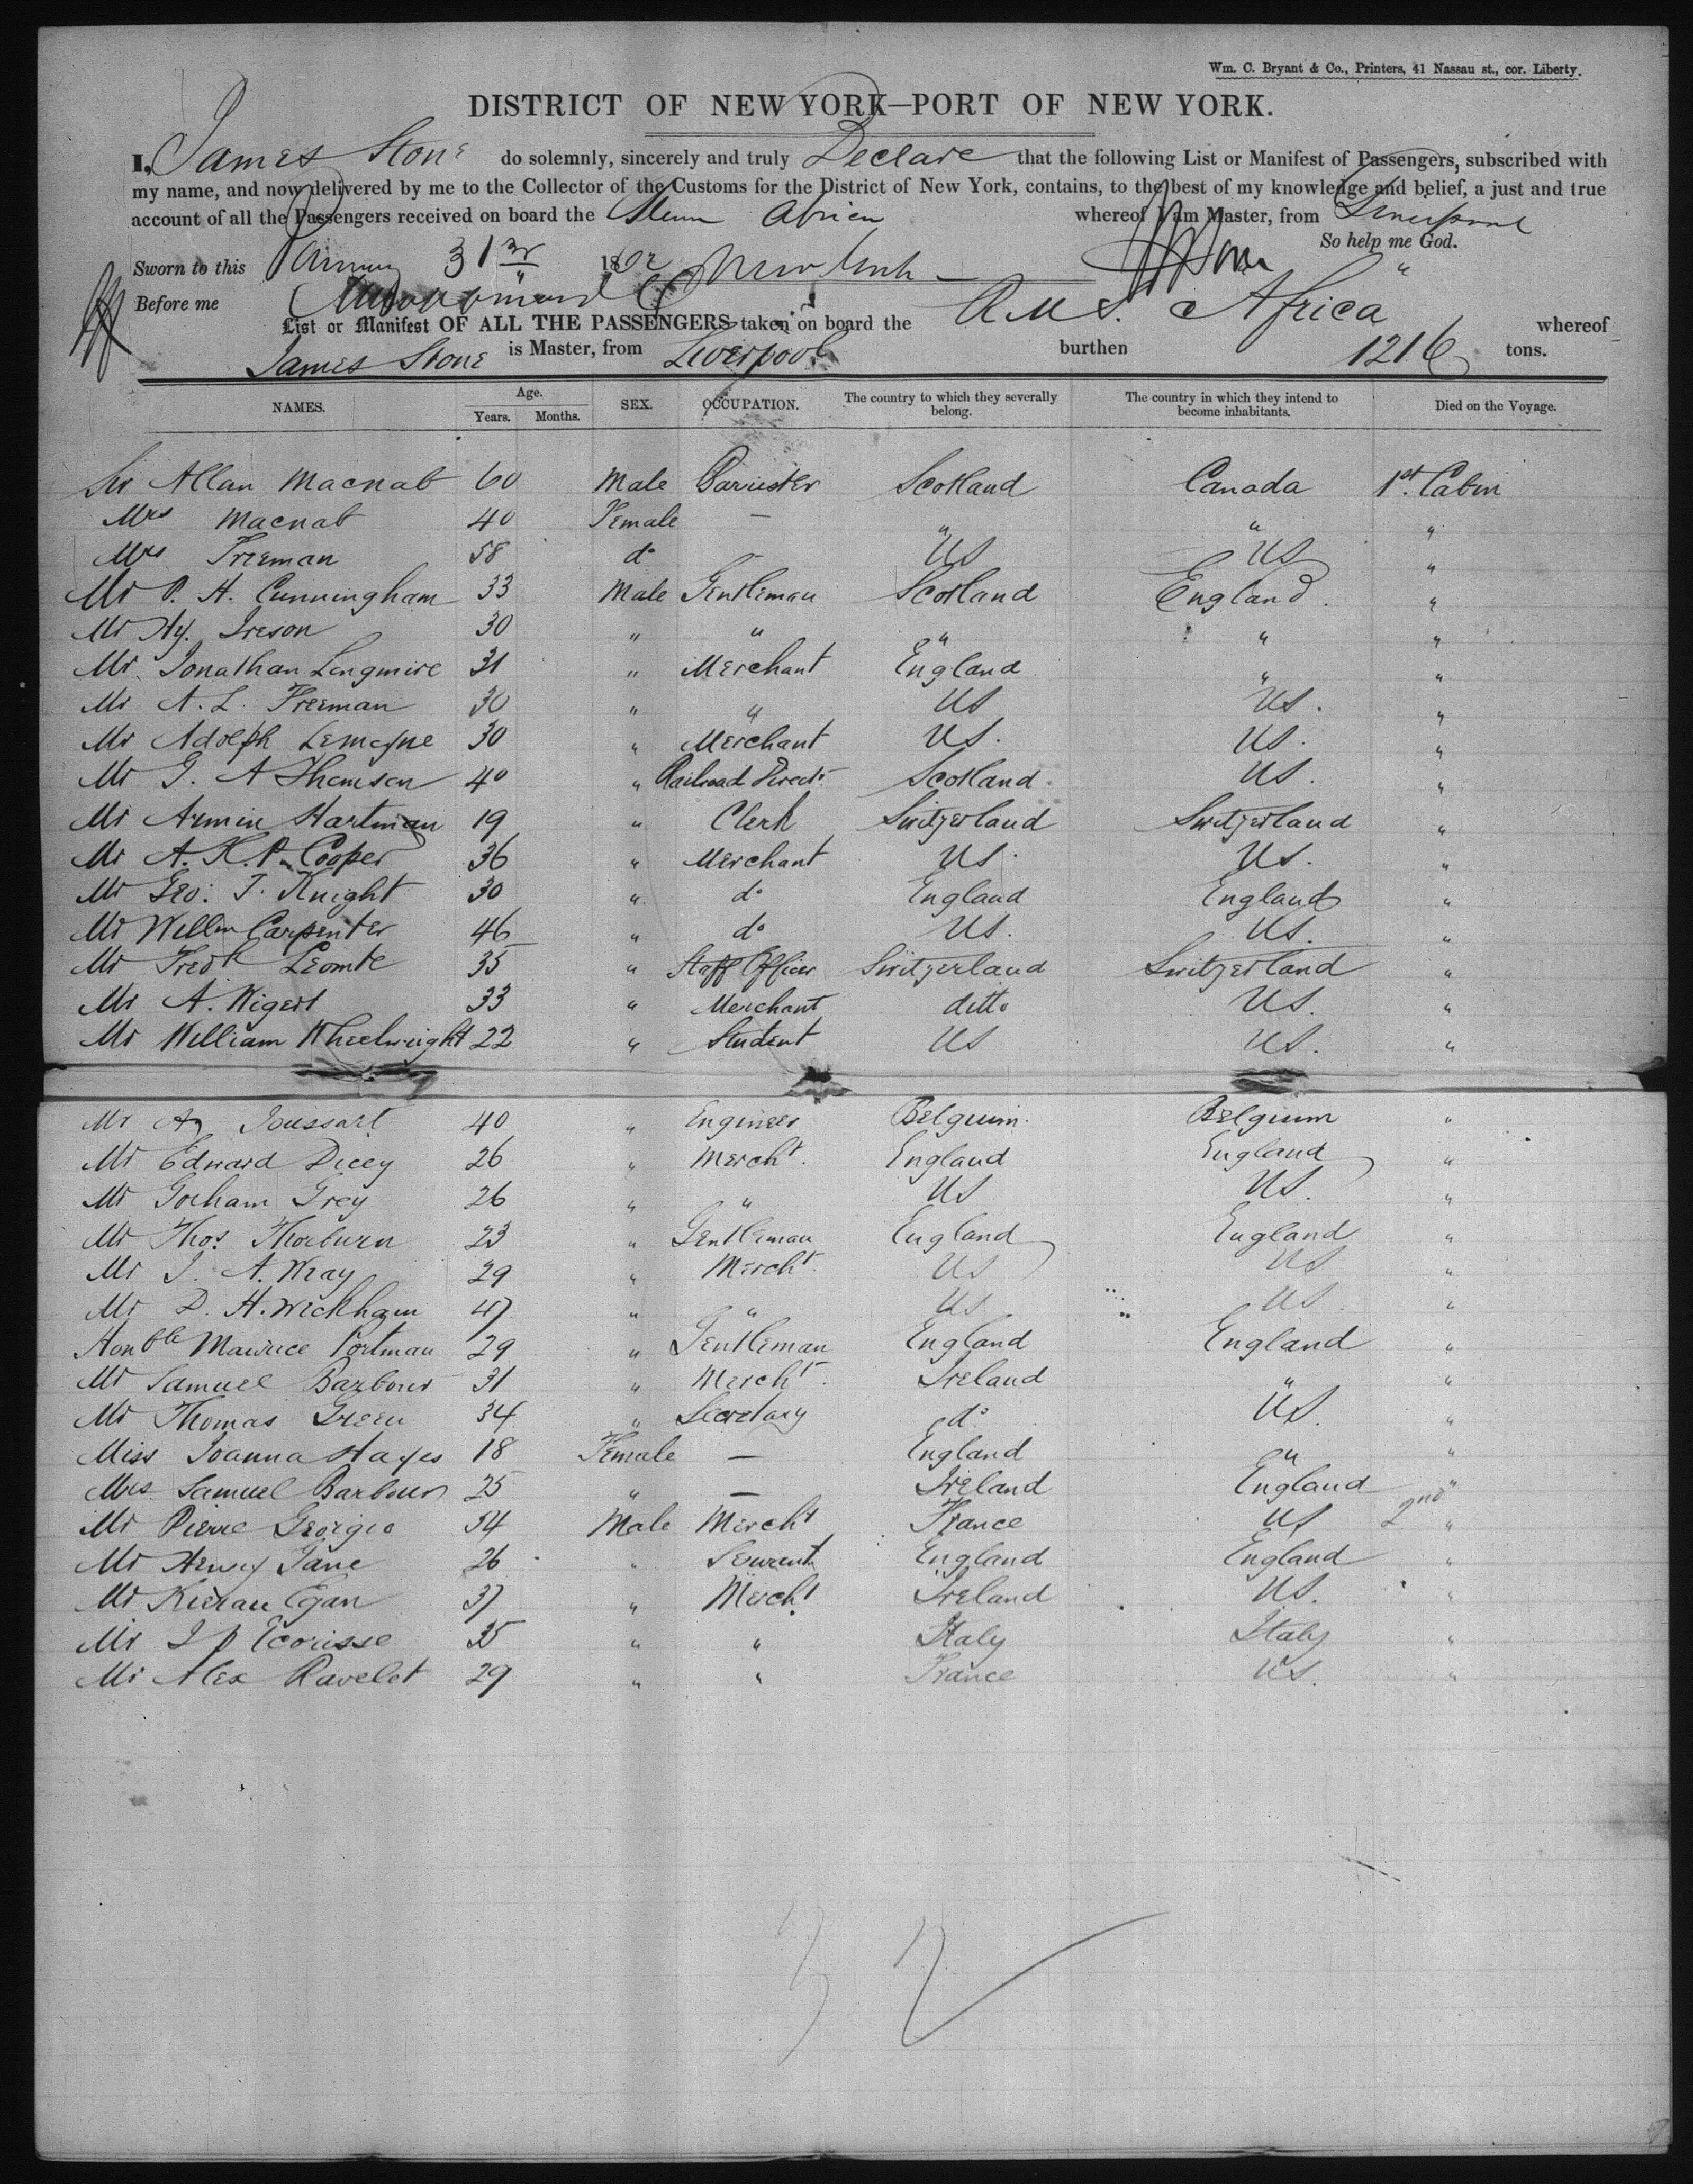 Wm. C. Bryant & Co., Printers, 41 Nassau st., cor. Liberty.
DISTRICT OF NEW YORK—PORT OF NEW YORK.
I, James Stone do solemnly, sincerely and truly Declare that the following List or Manifest of Passengers, subscribed with
my name, and now delivered by me to the Collector of the Customs for the District of New York, contains, to the best of my knowledge and belief, a just and true
account of all the Passengers received on board the whereof I am Master, from Liverpool
So help me God.
Sworn to this 31 1862 New York
Before me
List or Manifest OF ALL THE PASSENGERS taken on board the R M S. "Africa" whereof
James Stone is Master, from Liverpool burthen 1216 tons.
NAMES. Age. Years. Months. SEX. OCCUPATION. The country to which they severally belong. The country in which they intend to become inhabitants. Died on the Voyage.
Sir Allan Macnab 60 Male Barrister Scotland Canada 1st. Cabin
Mrs Macnab 40 Female — " " "
Mrs Freeman 58 do — US US "
Mr P. H. Cunningham 33 Male Gentleman Scotland England. "
Mr Hy. Ireson 30 " " " " "
Mr Jonathan Longmire 31 " Merchant England " "
Mr A. L. Freeman 30 " " US US. "
Mr Adolph Lemoyne 30 " Merchant US. US. "
Mr G. A Thomson 40 " Railroad Directr Scotland US. "
Mr Armin Hartman 19 " Clerk Switzerland Switzerland "
Mr A. K. P. Cooper 36 " Merchant US. US. "
Mr Geo: T. Knight 30 " do England England "
Mr Willm Carpenter 46 " do US. US. "
Mr Fredk Leomte 35 " Staff Officer Switzerland Switzerland "
Mr A. Wigert 33 " Merchant ditto US. "
Mr William Wheelwright 22 " Student US US. "
Mr Joussart 40 " Engineer Belgium. Belgium "
Mr Edward Dicey 26 " Mercht. England England "
Mr Gorham Grey 26 " " US US. "
Mr Thos. Thorburn 23 " Gentleman England England "
Mr J. A. Wray 29 " Mercht. US US "
Mr D. H. Wickham 47 " " US US "
Honble Maurice Portman 29 " Gentleman England England "
Mr Samuel Barbour 31 " Mercht. Ireland " "
Mr Thomas Green 34 " Secretary do US. "
Miss Joanna Hayes 18 Female — England " "
Mrs Samuel Barbour 25 " — Ireland England "
Mr Pierre Georgio 54 Male Mercht France US 2nd "
Mr Henry Jane 26 " Servant England England "
Mr Kieran Egan 37 " Mercht Ireland US. "
Mr J P Ecorisse 35 " " Italy Italy "
Mr Alex Ravelet 29 " " France US. "
32